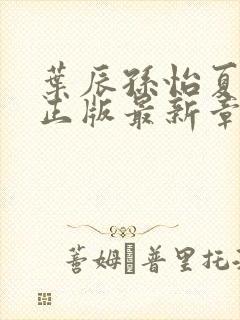 葉辰孫怡夏
正版最新章
蒼姆·普里托